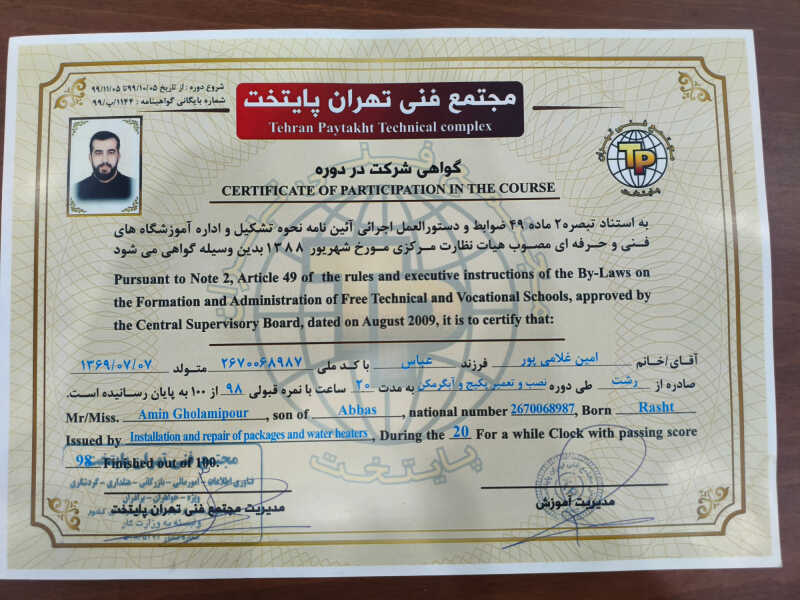 شروع دوره : از تاریخ ۹۹/۱۰/۰۵ تا ۹۹/۱۱/۰۵
شماره بایگانی گواهینامه : ۱۱۴۴/پ/۹۹
مجتمع فنی تهران پایتخت
Tehran Paytakht Technical complex
TP
گواهی شرکت در دوره
CERTIFICATE OF PARTICIPATION IN THE COURSE
به استناد تبصره۲ ماده ۴۹ ضوابط و دستورالعمل اجرائی آئین نامه نحوه تشکیل و اداره آموزشگاه های
فنی و حرفه ای مصوب هیات نظارت مرکزی مورخ شهریور ۱۳۸۸ بدین وسیله گواهی می شود
Pursuant to Note 2, Article 49 of the rules and executive instructions of the By-Laws on
the Formation and Administration of Free Technical and Vocational Schools, approved by
the Central Supervisory Board, dated on August 2009, it is to certify that:
آقای/خانم امین غلامی پور فرزند عباس با کد ملی ۲۶۷۰۰۶۸۹۸۷ متولد ۱۳۶۹/۰۷/۰۷
صادره از رشت طی دوره نصب و تعمیر پکیج و آبگرمکن به مدت ۲۰ ساعت با نمره قبولی ۹۸ از ۱۰۰ به پایان رسانیده است.
Mr/Miss. Amin Gholamipour, son of Abbas, national number 2670068987, Born Rasht
Issued by Installation and repair of packages and water heaters, During the 20 For a while Clock with passing score
98 Finished out of 100.
مجتمع فنی تهران پایتخت
فناوری اطلاعات - امورمالی - بازرگانی - هتلداری - گردشگری
ویژه - خواهران - برادران
مدیریت مجتمع فنی تهران پایتخت
وابسته به وزارت کار
مدیریت آموزش
پایتخت